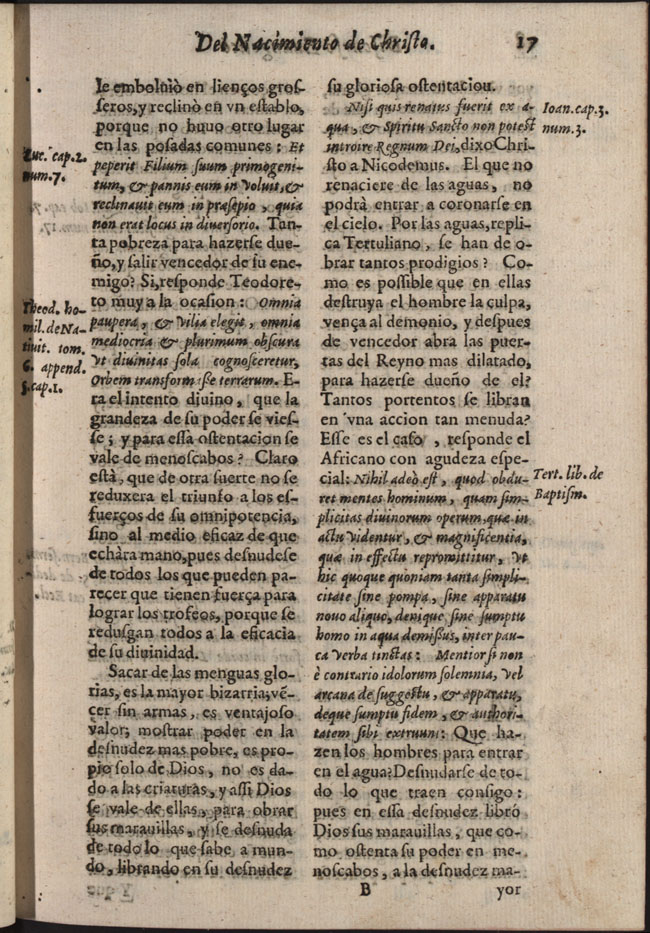 Del Nacimiento de Christo. 17
le emboluiò en lienços gros-
seros, y reclinò en vn establo,
porque no huuo otro lugar
en las posadas comunes: Et
peperit Filium suum primogeni-
tum, & pannis eum inVoluit, &
reclinauit eum in præsepio, quia
non erat locus in diuersorio. Tan-
ta pobreza para hazerse due-
ño, y salir vencedor de su ene-
migo? Si, responde Teodore-
to muy a la ocasion: Omnia
paupera, & Vilia elegit, omnia
mediocria & plurimum obscura
Vt diuinitas sola cognosceretur,
Orbem transformasse terrarum. E-
ra el intento diuino, que la
grandeza de su poder se vies-
se; y para essa ostentacion se
vale de menoscabos? Claro
està, que de otra suerte no se
reduxera el triunfo a los es-
fuerços de su omnipotencia,
sino al medio eficaz de que
echàra mano, pues desnudese
de todos los que pueden pa-
recer que tienen fuerça para
lograr los trofeos, porque se
redusgan todos a la eficacia
de su diuinidad.
Sacar de las menguas glo-
rias, es la mayor bizarria; vẽ-
cer sin armas, es ventajoso
valor; mostrar poder en la
desnudez mas pobre, es pro-
pio solo de Dios, no es da-
do a las criaturas, y assi Dios
se vale de ellas, para obrar
sus marauillas, y se desnuda
de todo lo que sabe a mun-
do, librando en su desnudez
Luc. cap. 2.
num. 7.
Theod. ho-
mil. de Na-
tiuit. tom.
6. append.
5. cap. 1.
su gloriosa ostentacion.
Nisi quis renatus fuerit ex a-
qua, & Spiritu Sancto non potest
introire Regnum Dei, dixo Chri-
sto a Nicodemus. El que no
renaciere de las aguas, no
podrà entrar a coronarse en
el cielo. Por las aguas, repli-
ca Tertuliano, se han de o-
brar tantos prodigios? Co-
mo es possible que en ellas
destruya el hombre la culpa,
vença al demonio, y despues
de vencedor abra las puer-
tas del Reyno mas dilatado,
para hazerse dueño de el?
Tantos portentos se libran
en vna accion tan menuda?
Esse es el caso, responde el
Africano con agudeza espe-
cial: Nihil adeò est, quod obdu-
ret mentes hominum, quam sim-
plicitas diuinorum operum, quæ in
actu Videntur, & magnificentia,
quæ in effectu repromittitur, Vt
hic quoque quoniam tanta simpli-
citate sine pompa, sine apparatu
nouo aliquo, denique sine sumptu
homo in aqua demissus, inter pau-
ca Verba tinctus: Mentior si non
è contrario idolorum solemnia, Vel
arcana de suggestu, & apparatu,
deque sumptu fidem, & authori-
tatem sibi extruunt: Que ha-
zen los hombres para entrar
en el agua? Desnudarse de to-
do lo que traen consigo:
pues en essa desnudez librò
Dios sus marauillas, que co-
mo ostenta su poder en me-
noscabos, a la desnudez ma-
Ioan. cap. 3.
num. 3.
Tert. lib. de
Baptism.
B yor